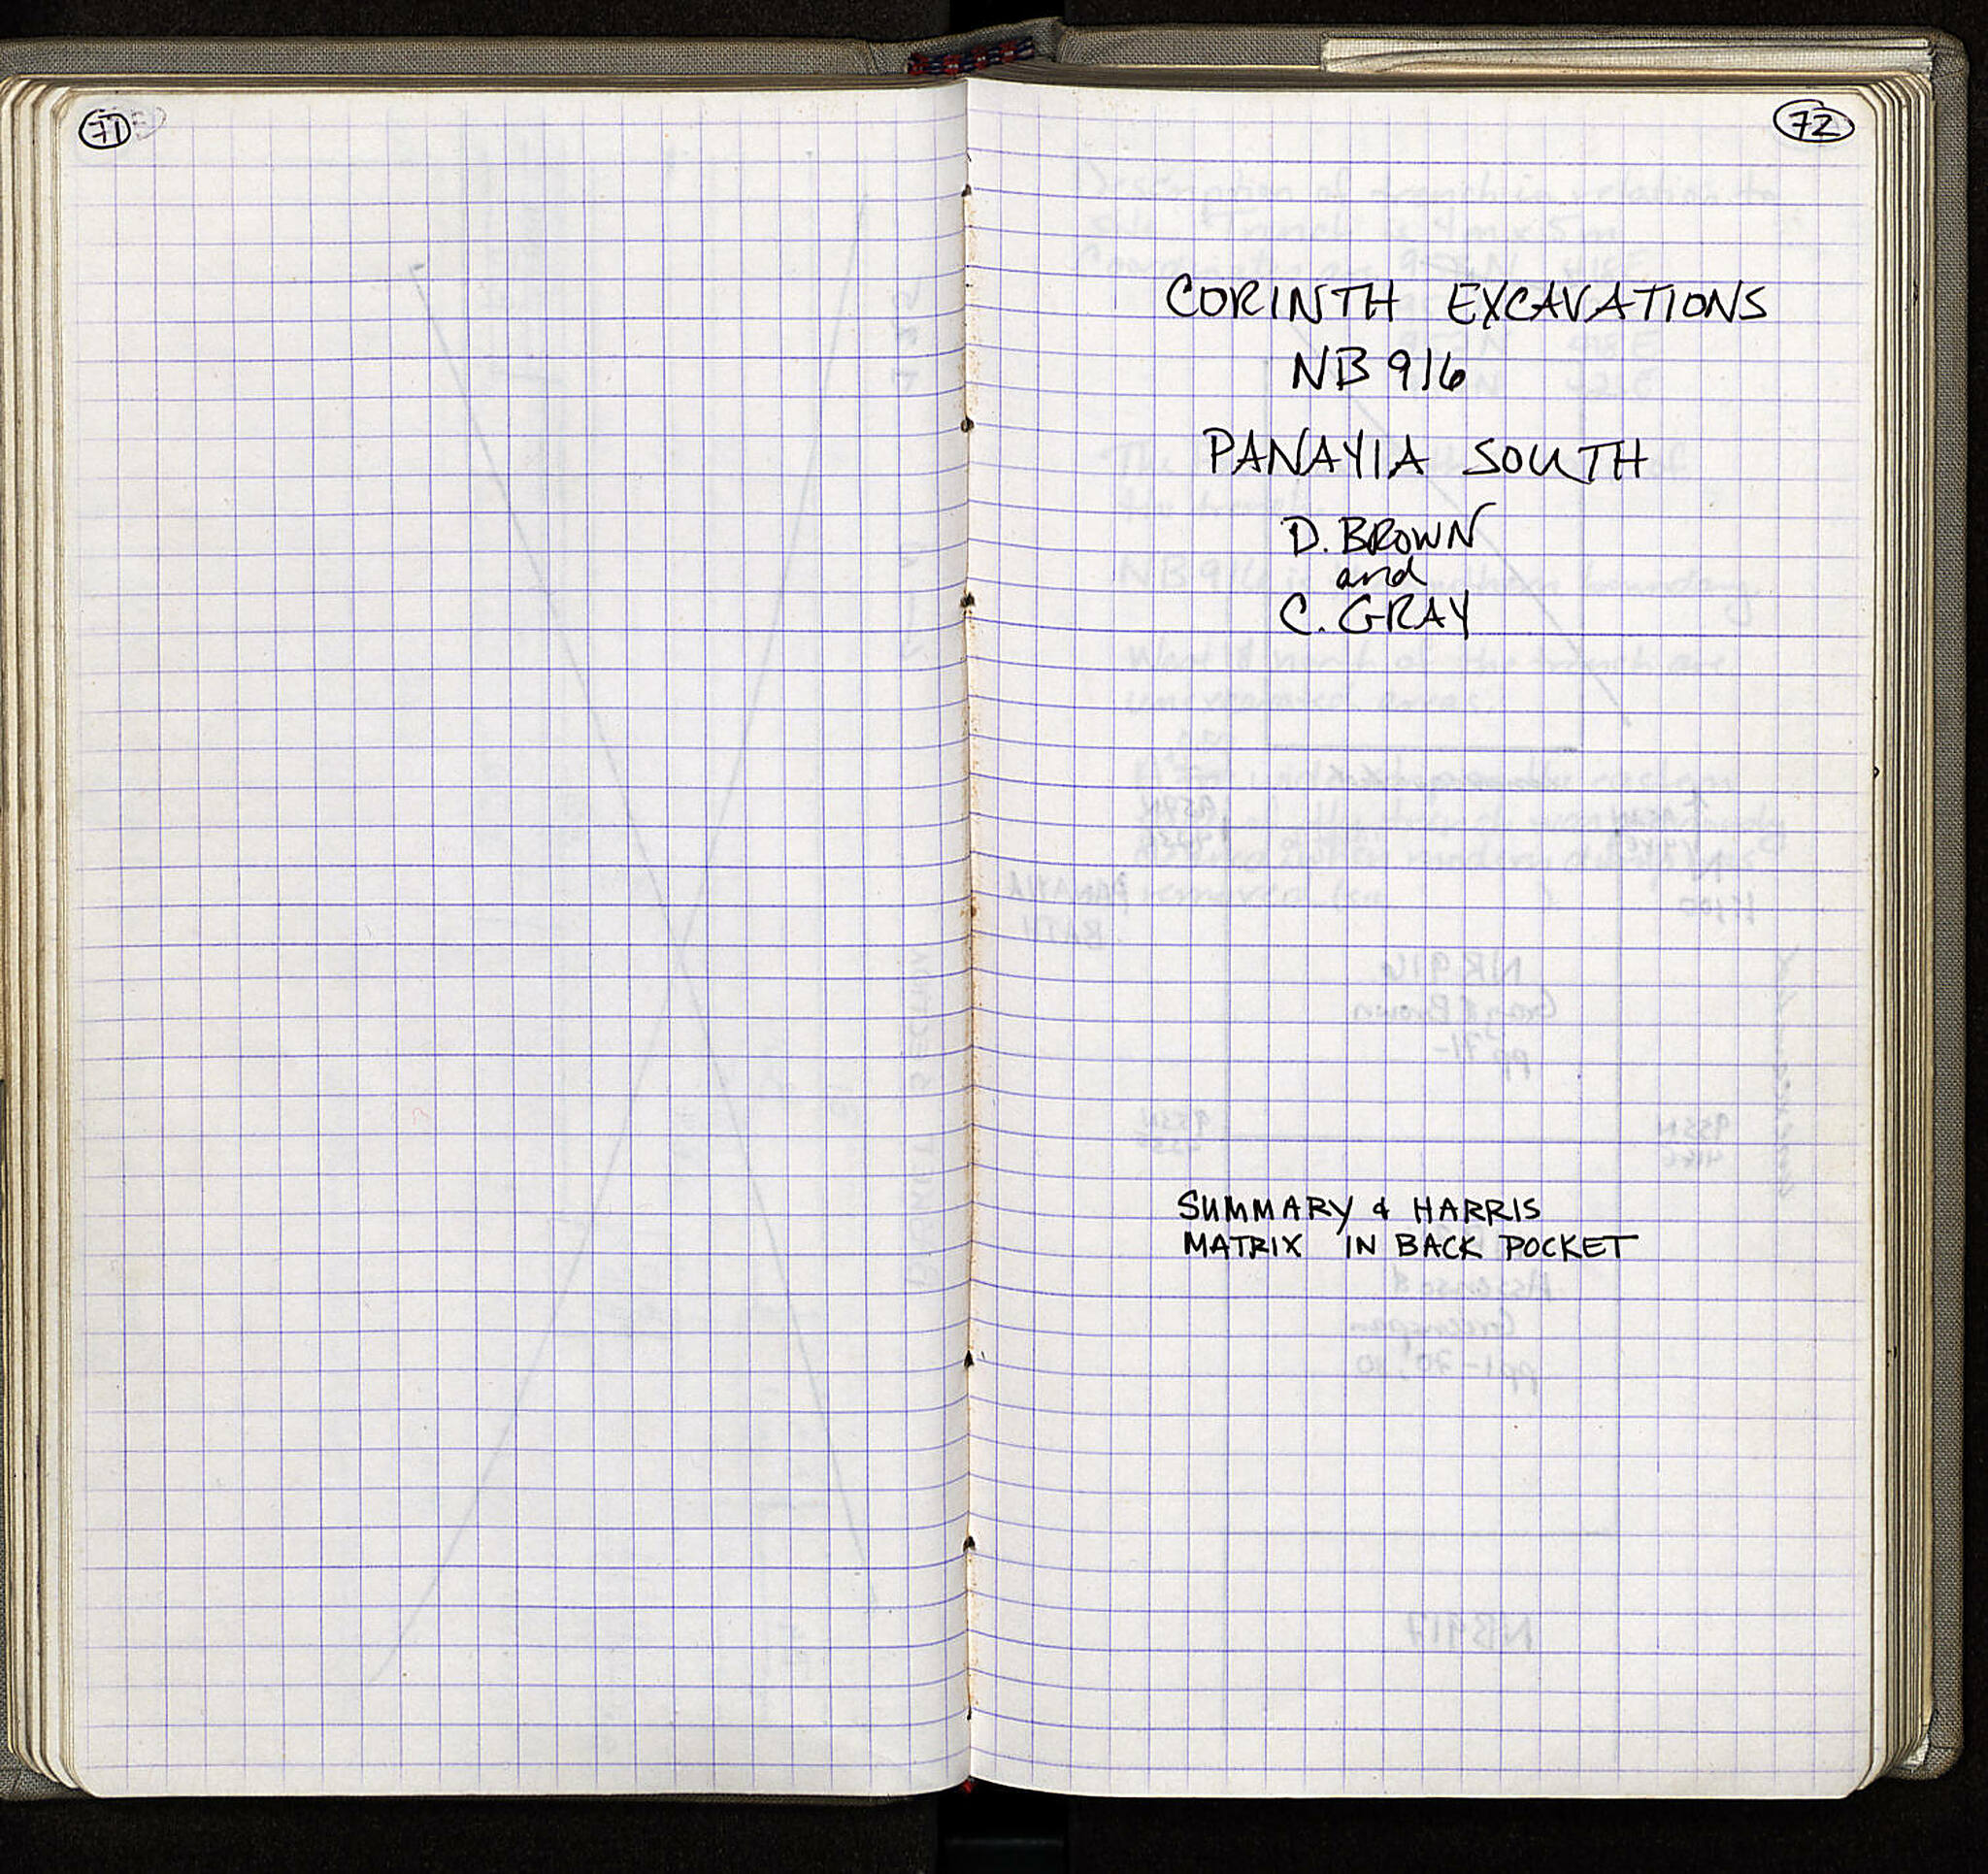 71
72
CORINTH EXCAVATIONS
NB 916
PANAYIA SOUTH
D. BROWN
and
C. GRAY
SUMMARY & HARRIS
MATRIX IN BACK POCKET